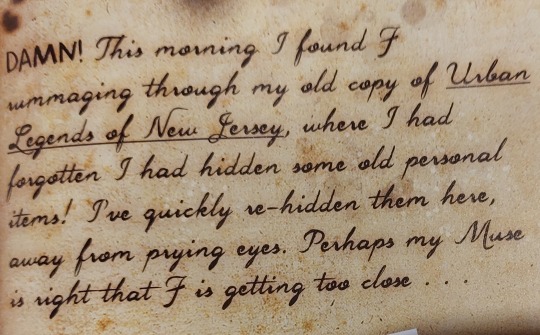 DAMN! This morning I found F
rummaging through my old copy of Urban
Legends of New Jersey, where I had
forgotten I had hidden some old personal
items! I've quickly re-hidden them here,
away from prying eyes. Perhaps my Muse
is right that F is getting too close . . . .